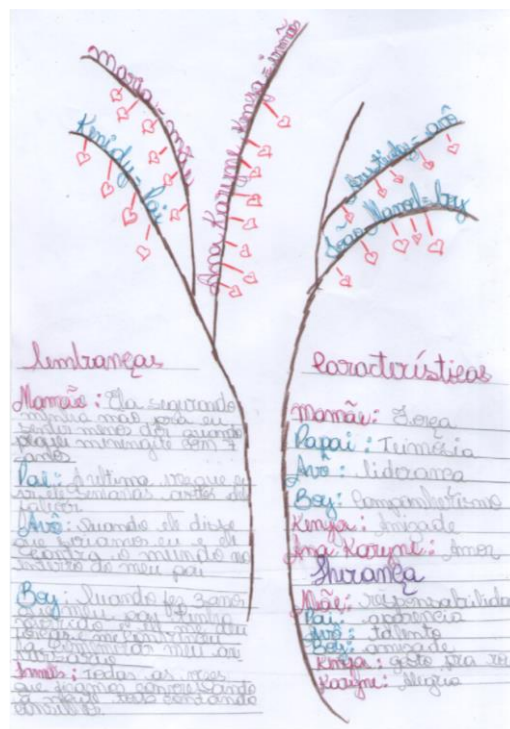 Marta - mãe
Kenidy - Pai
Ana Karyne Kenya - irmãs
Aristides - avô
João Manoel - boy
Lembranças
Mamãe: Ela segurando
minha mão pra eu
sentir menos dor quando
peguei meningite com 7
anos
Pai: A última vez que eu
antes de
Avô: Quando ele disse
que seríamos eu e ele
contra o mundo no
enterro do meu pai
Boy: Quando fez 3 anos
que meu pai tinha
e ele me deu
forças e me lembrou
Irmãs: Todas as vezes
que ficamos conversando
Características
Mamãe: Força
Papai: Teimosia
Avô: liderança
Boy: Companheirismo
Kenya: Amizade
Ana Karyne: Amor
Herança
Mãe: responsabilidade
Pai: aparência
Avô: talento
Boy: amizade
Kenya: gosto pra
Karyne: Alegria